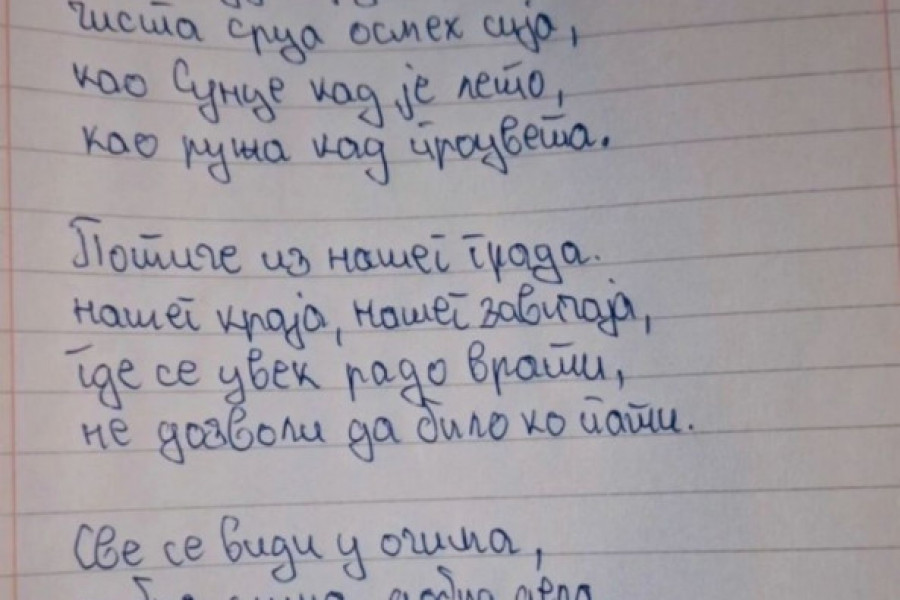 чиста срца осмех сија,
као Сунце кад је лето,
као ружа кад процвета.
Потиче из нашег града.
нашег краја, нашег завичаја,
где се увек радо врати,
не дозволи да било ко пати.
Све се види у очима,
добра дела